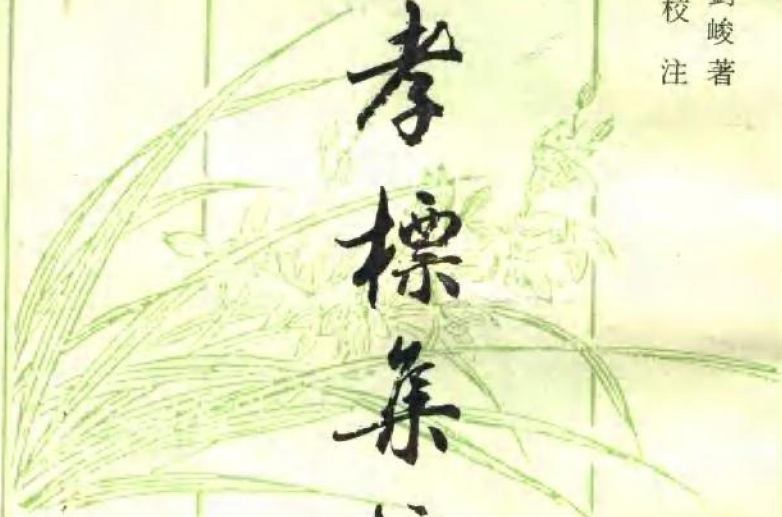 峻著
校注
孝標集